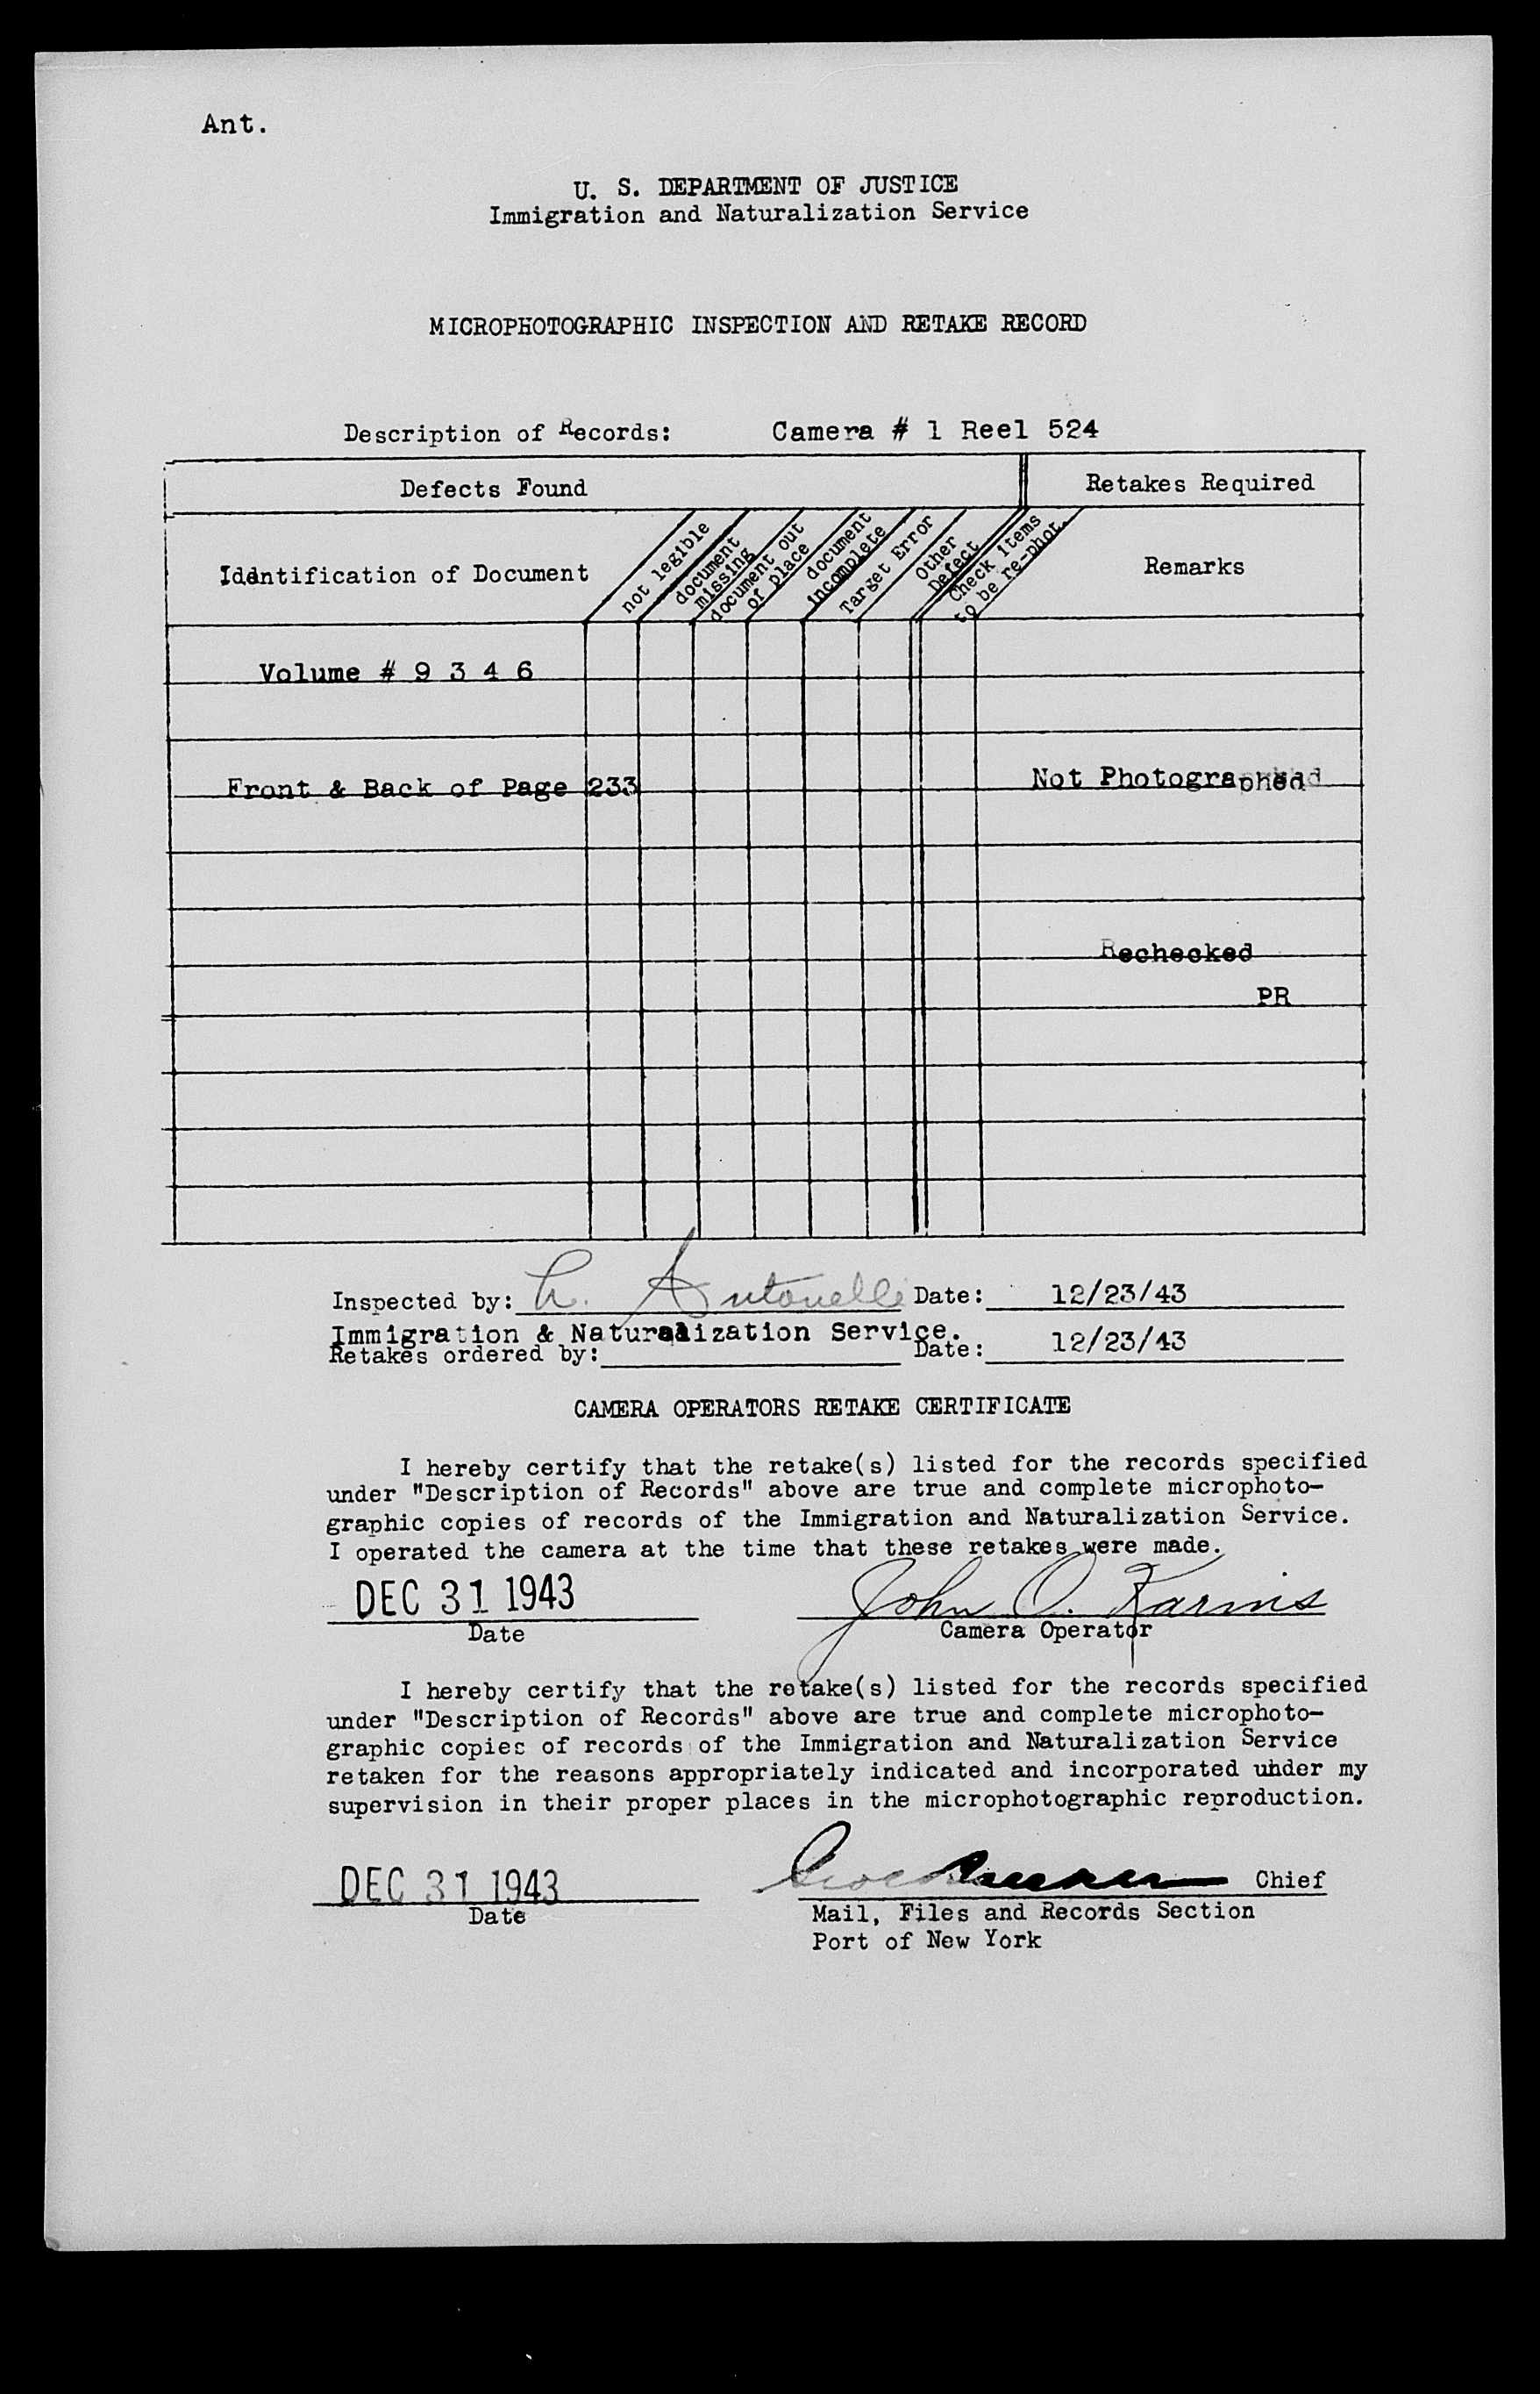 Ant.
U. S. DEPARTMENT OF JUSTICE
Immigration and Naturalization Service
MICROPHOTOGRAPHIC INSPECTION AND RETAKE RECORD
Description of Records: Camera # 1 Reel 524
Defects Found
Retakes Required
Identification of Document
not legible
document
missing
document out
of place
document
incomplete
Target Error
Other
Defect
Check items
to be re-phot.
Remarks
Volume # 9 3 4 6
Front & Back of Page 233 Not Photographed
Rechecked
PR
Inspected by: L. Antonelli Date: 12/23/43
Immigration & Naturalization Service.
Retakes ordered by: Date: 12/23/43
CAMERA OPERATORS RETAKE CERTIFICATE
I hereby certify that the retake(s) listed for the records specified
under "Description of Records" above are true and complete microphoto-
graphic copies of records of the Immigration and Naturalization Service.
I operated the camera at the time that these retakes were made.
DEC 31 1943 John O. Karins
Date Camera Operator
I hereby certify that the retake(s) listed for the records specified
under "Description of Records" above are true and complete microphoto-
graphic copies of records of the Immigration and Naturalization Service
retaken for the reasons appropriately indicated and incorporated under my
supervision in their proper places in the microphotographic reproduction.
DEC 31 1943 Chief
Date Mail, Files and Records Section
Port of New York